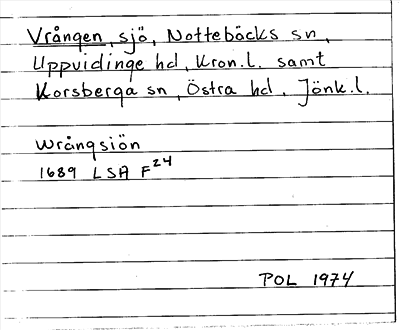 Vrången, sjö, Nottebäcks sn,
Uppvidinge hd, Kron.l. samt
Korsberga sn, Östra hd, Jönk.l.
Wrångsiön
1689 LSA F24
POL 1974